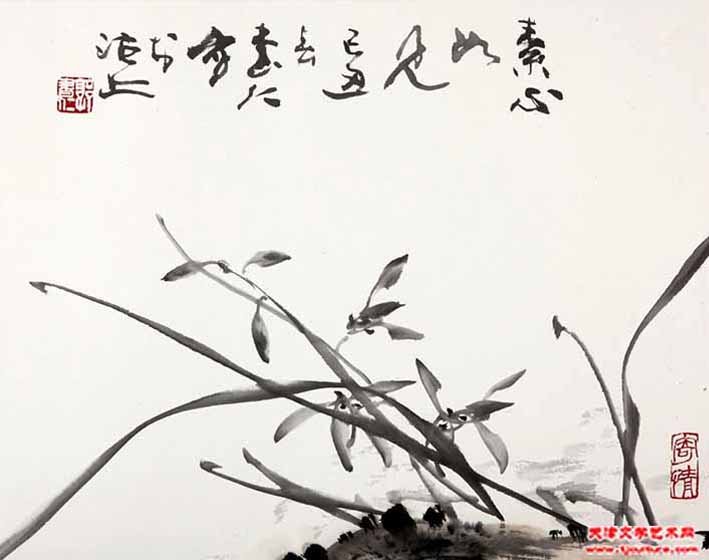 素心
如
见
己丑
春
写
于
沽上
寄情
天津文学艺术网